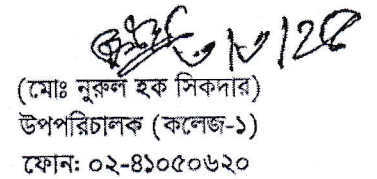 (মোঃ নুরুল হক সিকদার)
উপপরিচালক (কলেজ-১)
ফোন: ০২-৪১০৫০৬২০